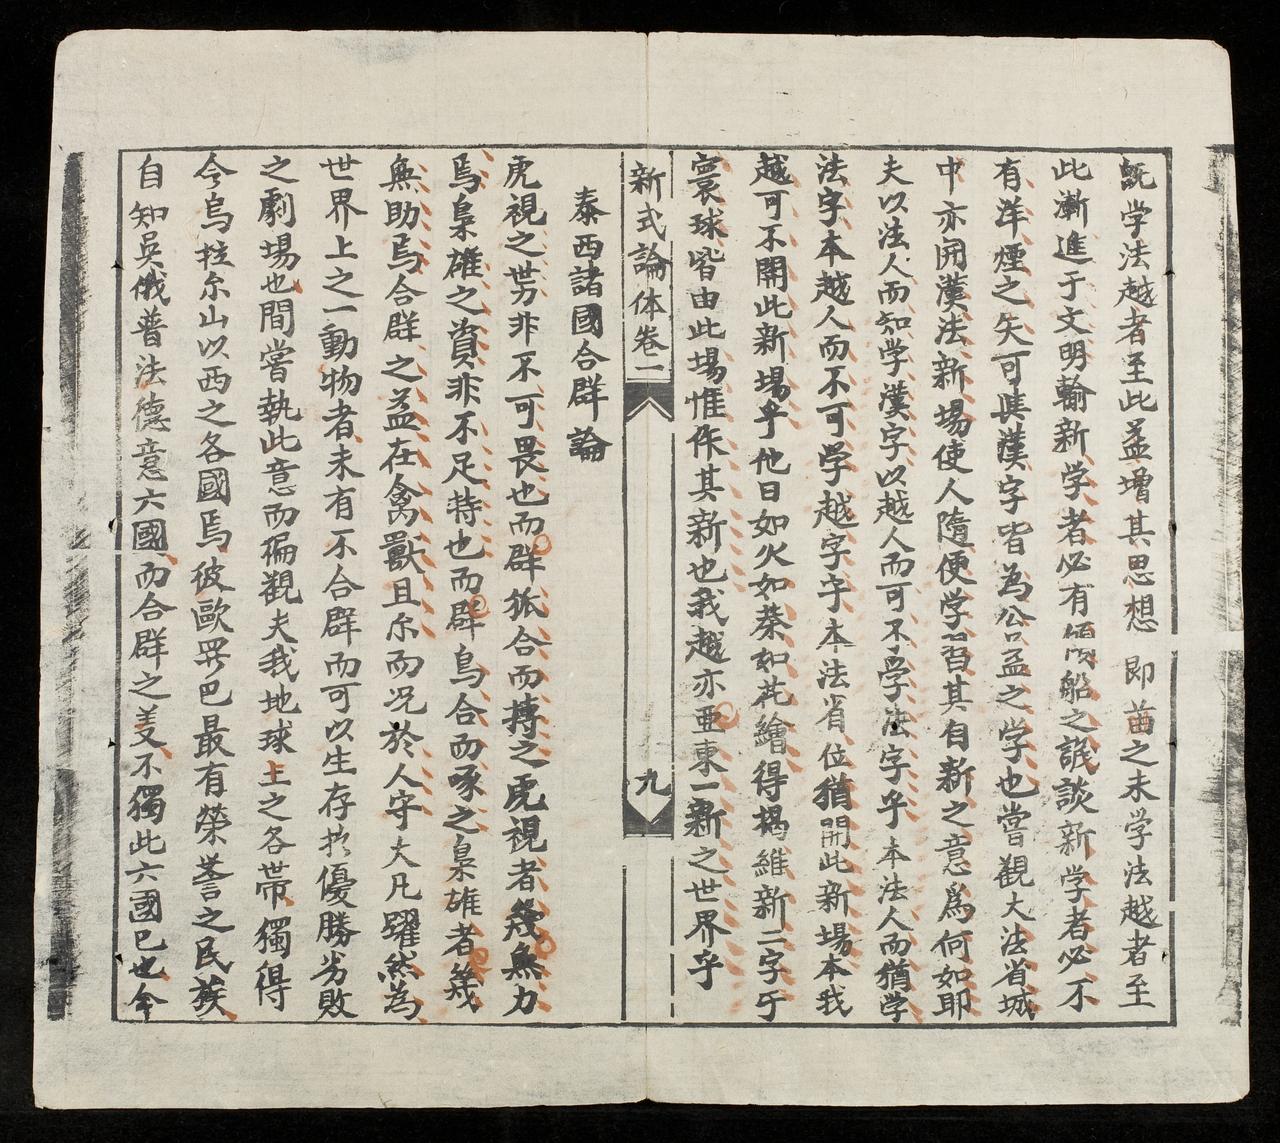 既学法越者至此益增其思想即啚之未学法越者至
此漸進于文明輸新学者必有傾船之詆談新学者必不
有洋煙之矢可與漢字皆為公益之学也嘗觀大法省城
中亦開漢法新場使人隨便学習其自新之意為何如耶
夫以法人而知学漢字以越人而可不学法字乎本法人而猶学
法字本越人而不可学越字字本法省位猶開此新場本我
越可不開此新場乎他日如火如荼如花繪得揭維新二字于
寰球皆由此場惟作其新也我越亦亜東一新之世界乎
新式論体卷一
九
泰西諸國合群論
虎視之世界非不可畏也而群狐合而搏之虎視者幾無力
焉梟雄之資非不足恃也而群鳥合而啄之梟雄者幾
無助焉合群之益在禽獸且尔而况於人乎大凡躍然為
世界上之一動物者未有不合群而可以生存於優勝劣敗
之劇場也間嘗執此意而徧觀夫我地球上之各世帶獨得
今烏拉尔山以西之各國焉彼歐羅巴最有榮誉之民族
自知吳俄普法德意六國而合群之美不獨此六國已也今